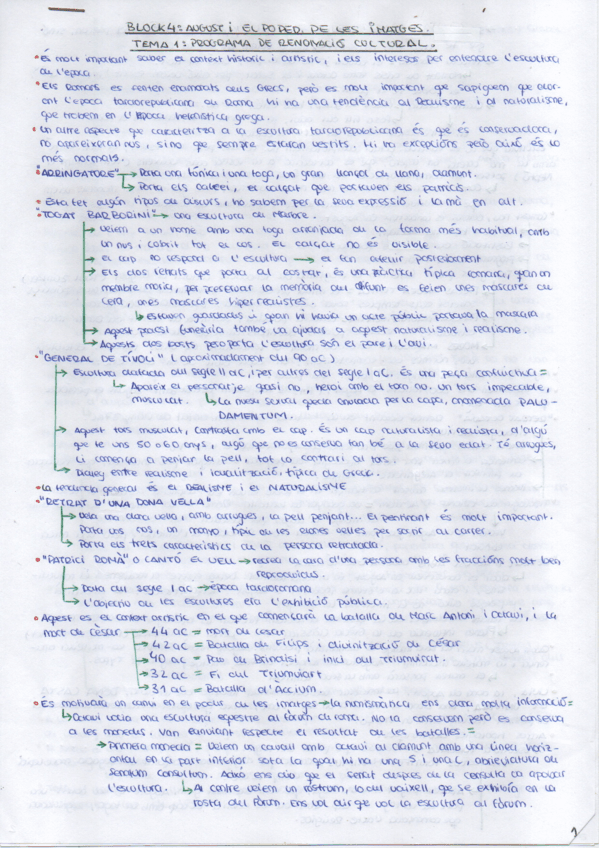 BLOCK 4: AUGUST I EL PODER DE LES IMATGES.
TEMA 1: PROGRAMA DE RENOVACIÓ CULTURAL.
• És molt important saber el context històric i artístic, i els interesos per entendre l'escultura
de l'època.
• Els Romans es senten enamorats dels Grecs, però és molt important que sapiguem que dur-
ant l'època tardorepublicana de Roma hi ha una tendència al Realisme i al naturalisme,
que trobem en l'Època hel·lenística grega.
• Un altre aspecte que caracteritza a la escultura tardorepublicana és que és conservadora,
no apareixeran nus, sino que sempre estaran vestits. Hi ha excepcions però això és lo
més normal.
• "ARRINGATORE" → Porta una túnica i una toga, un gran llençol de llana, damunt.
→ Porta els calcei, el calçat que portaven els patricis.
• Està fet algún tipus de discurs, ho sabem per la seva expressió i la mà en alt.
• "TOGAT BARBERINI" → una escultura de Marbre.
→ Veiem a un home amb una toga arranjada de la forma més habitual, amb
un nus i cobrit tot el cos. El calçat no és visible.
→ el cap no respon a l'escultura → el fan afegir posteriorment
→ Els dos retrats que porta al costat, és una pràctica típica romana, quan un
membre moria, per preservar la memòria del difunt es feien unes mascares de
cera, unes mascares hiperrealistes.
↳ estaven guardades i quan hi havia un acte públic portava la mascara
→ Aquest procés funerària també va ajudar a aquest naturalisme i realisme.
→ Aquests dos busts però porta l'escultura són el pare i l'avi.
• "GENERAL DE TÍVOLI" (aproximadament del 90 aC)
→ Escultura datada del segle II aC, i per altres del segle I aC. És una peça conflictiva =
↳ Apareix el personatge quasi nu, heroi amb el tors nu. Un tors impecable,
musculat. ↳ La nuesa servia queda amarada per la capa, anomenada PALU-
DAMENTUM.
→ Aquest tors musculat, contrasta amb el cap. És un cap naturalista i realista, d'algú
que te uns 50 o 60 anys, algú que no es conserva tan bé a la seva edat. Té arrugues,
li comença a penjar la pell, tot lo contrari al tors.
→ Diàleg entre realisme i idealització, típica de Grècia.
• La tendència general és el REALISME i el NATURALISME
• "RETRAT D'UNA DONA VELLA"
→ Data una dona vella, amb arrugues, la pell penjant... El pentinat és molt important.
Porta uns ros, un manto, típic de les dones velles per sortir al carrer.
→ Porta els trets característics de la persona retratada.
• "PATRICI ROMÀ" O CANTÓ EL VELL → recrea la cara d'una persona amb les fraccions molt ben
reproduides.
→ Data del segle I aC → època tardoromana
→ L'objectiu de les escultures era l'exhibició pública.
• Aquest és el context artístic en el que començarà la batalla de Marc Antoni i Octavi, i la
mort de Cèsar → 44 aC = mort de Cesar
→ 42 aC = Batalla de Filips i divinització de CÉSAR
→ 40 aC = Pau de Brindisi i inici del Triumvirat.
→ 32 aC = Fi del Triumvirat
→ 31 aC = Batalla d'Àccium.
• Es motivarà un canvi en el poder de les imatges → la numismàtica ens dona molta informació =
↳ Octavi volia una escultura eqüestre al fòrum de roma. No la conservem però es conserva
a les monedes. Van canviant respecte el resultat de les batalles. =
→ Primera moneda = Veiem un cavall amb octavi al damunt amb una línea horiz-
ontal en la part inferior sota la qual hi ha una S i una C, abreviatura de
Senatum consultum. Això ens diu que el senat despres de la consulta va aprovar
l'escultura. ↳ Al centre veiem un rostrum, lo del vaixell, que se exhibirà en la
rosta del fòrum. Ens vol dir que vol la escultura al fòrum.
1